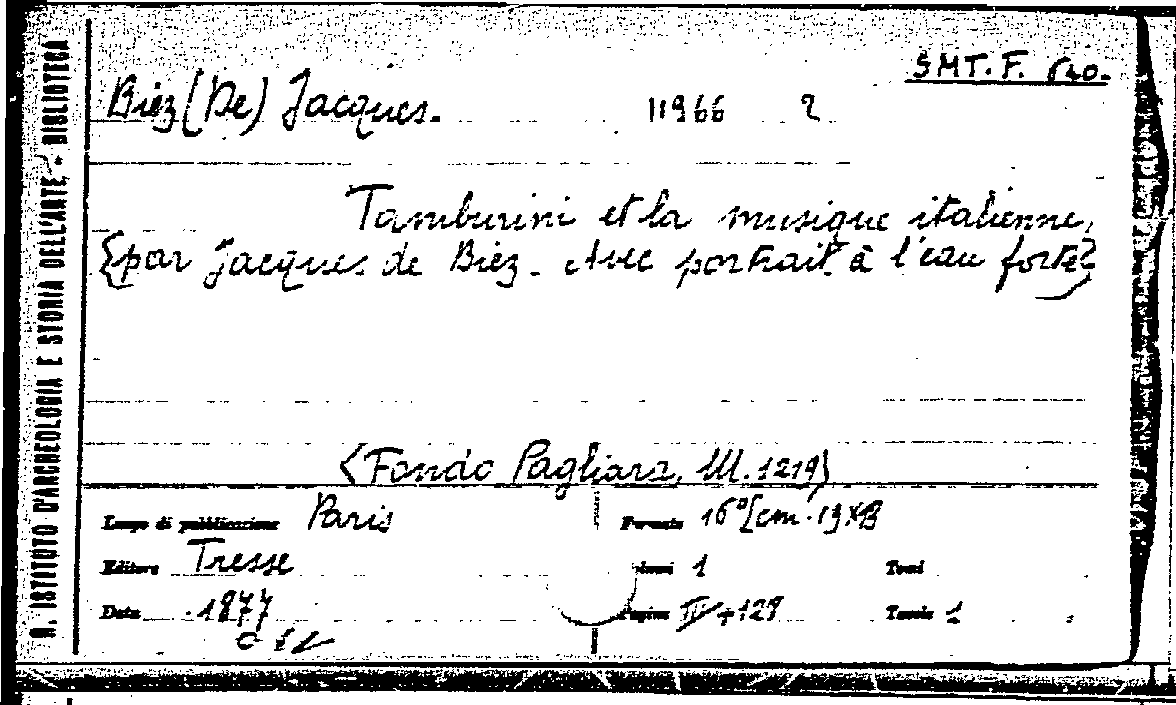 R. ISTITUTO D'ARCHEOLOGIA E STORIA DELL'ARTE. - BIBLIOTECA
SMT. F. 640.
Biez (De) Jacques. 11966 2
Tamburini et la musique italienne,
par Jacques de Biez. Avec portrait à l'eau forte
(Fondo Pagliara, III. 1219)
Luogo di pubblicazione Paris Formato 16° [cm. 19x13
Editore Tresse Volumi 1 Tomi
Data 1877 Pagine IV+129 Tavole 1